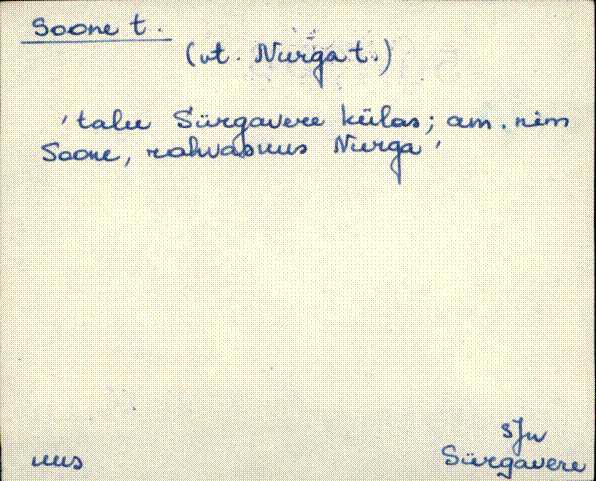 Soone t.
(vt. Nurga t.)
'talu Sürgavere külas; am. nim
Soone, rahvasuus Nurga'
SJn
uus
Sürgavere